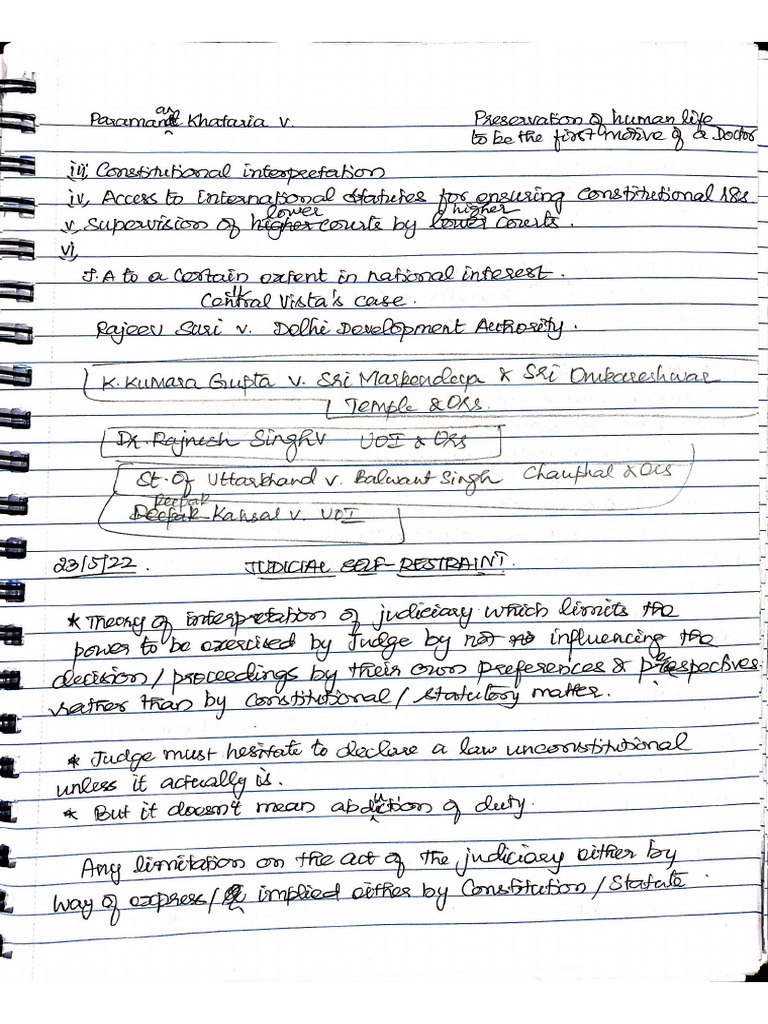 Paramanand Khataria v. Preservation of human life
to be the first motive of a Doctor
iii, Constitutional interpretation
iv, Access to International statutes for ensuring constitutional
v, Supervision of lower courts by higher courts.
vi,
J.A to a certain extent in national interest.
Central Vista's case.
Rajeev Suri v. Delhi Development Authority.
K. Kumara Gupta v. Sri Markendaya & Sri Omkareshwar
Temple & Ors.
Dr. Rajnesh Singh v UOI & Ors
St. Of Uttarkhand v. Balwant Singh Chauphal & Ors
Deepak Kansal v. UOI
23/5/22. JUDICIAL SELF-RESTRAINT.
* Theory of interpretation of judiciary which limits the
power to be exercised by Judge by not influencing the
decision / proceedings by their own preferences & perspectives
rather than by Constitutional / Statutory matter.
* Judge must hesitate to declare a law unconstitutional
unless it actually is.
* But it doesn't mean abdication of duty.
Any limitation on the act of the judiciary either by
way of express / implied either by Constitution / Statute.